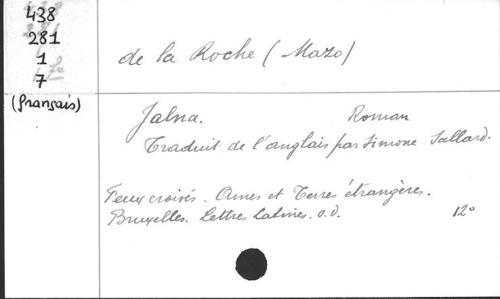 438
281
1
7
(français)
de la Roche (Mazo)
Jalna. Roman
Traduit de l'anglais par Simone Sallard.
Feux croisés. Ames et Terres étrangères.
Bruxelles. Lettres Latines. s.d. 12°